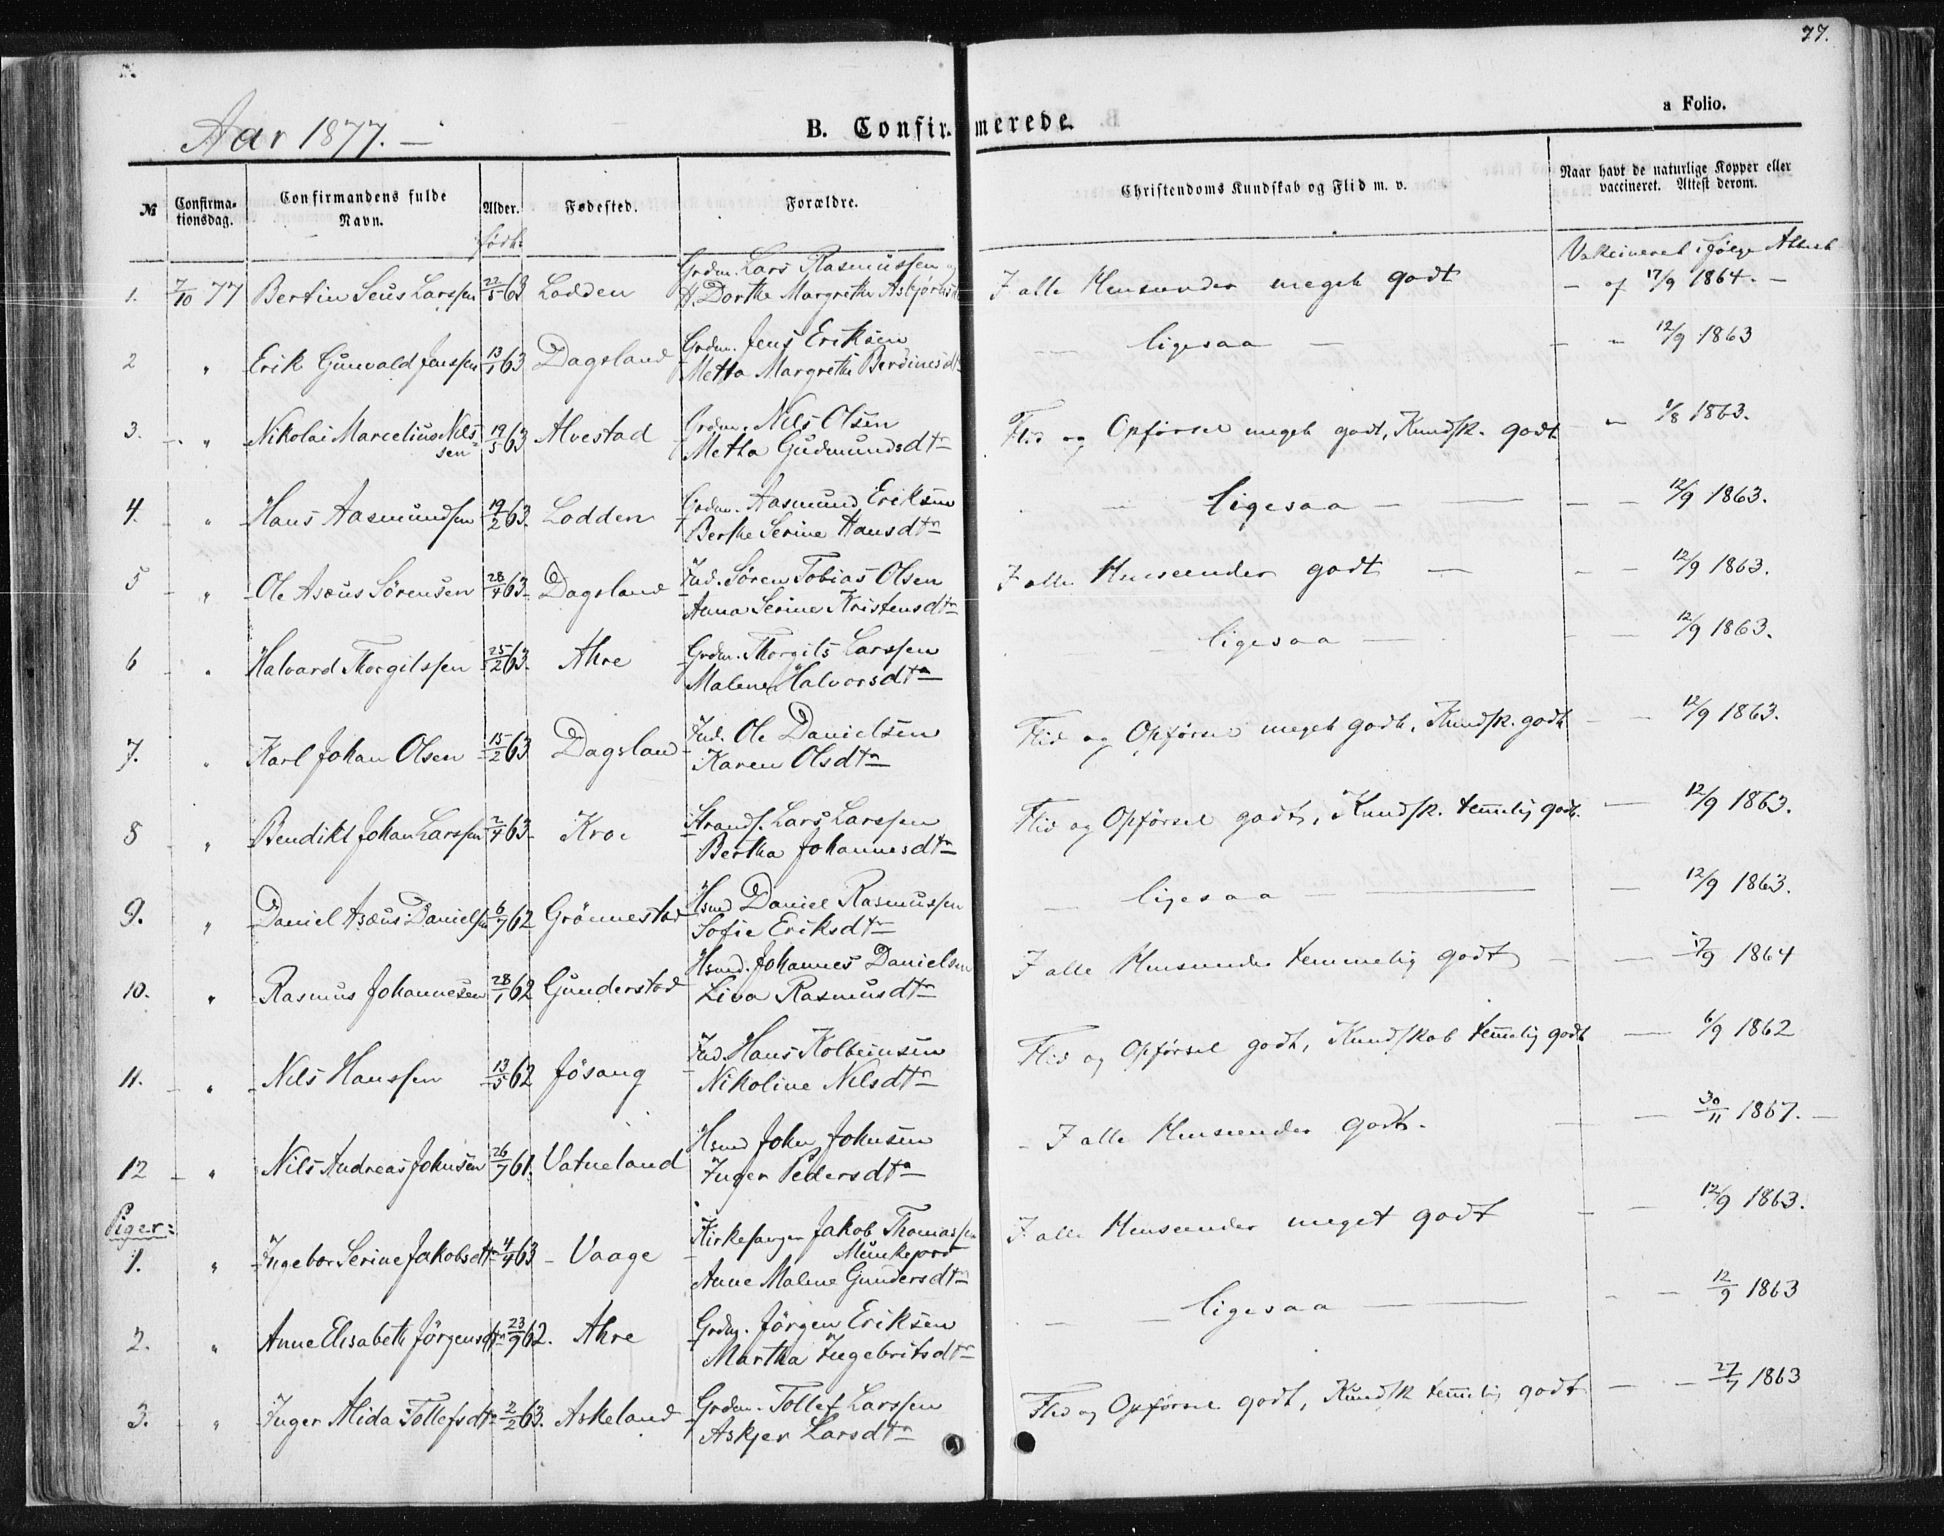 77.
a Folio.
Aar 1877. —
B. Confirmerede.
№ Confirmationsdag. Confirmandens fulde Navn. Alder. Fødested. Forældre. Christendoms Kundskab og Flid m. v. Naar havt de naturlige Kopper eller vaccineret. Attest derom.
født
1. 7/10 77 Bertin Seus Larssen 22/5 63 Lodden Grdm. Lars Rasmussen og H. Dorthe Margrethe Asbjørnsd I alle Henseender meget godt Vakcineret ifølge Attest — af 17/9 1864. —
2 " Erik Gunvald Jenssen 13/1 63 Dagsland Grdm. Jens Eriksen Metta Margrethe Berdinesdtr — ligesaa — — " 12/9 1863
3. — " Nikolai Marcelius Nilssen 19/5 63 Alvestad Grdm. Nils Olsen Metha Gudmundsdtr Flid og Opførsel meget godt, Kundsk. godt — " 1/8 1863.
4. — " Hans Aasmundsen 19/2 63. Lodden Grdm. Aasmund Eriksen Berthe Serine Hansdtr — ligesaa — — — 12/9 1863.
5 — " Ole Asæus Sørensen 28/4 63 Dagsland Ind. Søren Tobias Olsen Anna Serine Kristensdtr I alle Henseender godt — — — 12/9 1863.
6 — " Halvard Thorgilssen 25/2 63. Ahre Grdm. Thorgils Larssen Malene Halvorsdtr — ligesaa — — — 12/9 1863.
7. " Karl Johan Olsen 15/2 63 Dagsland Ind. Ole Danielsen Karen Olsdtr Flid og Opførsel meget godt, Kundsk. godt — — 12/9 1863.
8 — " Bendikt Johan Larssen 2/4 63 Kroe Strands. Lars Larssen Bertha Johannesdtr Flid og Opførsel godt, Kundsk. temelig godt. — 12/9 1863.
9. " Daniel Asæus Danielsen 6/7 62 Grønnestad Hsmd Daniel Rasmussen Sofie Eriksdtr — ligesaa — — 12/9 1863.
10. " Rasmus Johannesen 28/1 62 Gunderstad Hsmd. Johannes Danielsen Liva Rasmusdtr I alle Henseender temmelig godt — — 17/9 1864
11. — " Nils Hanssen 13/5 62 Jøsang Ind. Hans Kolbeinsen Nikoline Nilsdtr Flid og Opførsel godt, Kundskab temelig godt — 6/9 1862
12 — " Nils Andreas Johnsen 26/7 61. Vatneland Hsmd John Johnsen Inger Pedersdtr — I alle Henseender godt. — 30/11 1867. —
Piger:
1. " Ingebor Serine Jakobsdtr 4/4 63 Vaage Kirkesanger Jakob Thomassen Munkejord Anne Malene Gundersdtr I alle Henseender meget godt — — 12/9 1863.
2. " Anne Elisabeth Jørgensdtr 23/9 62. Ahre Grdm. Jørgen Eriksen Martha Ingebritsdtr — ligesaa — — — 12/9 1863
3. — " Inger Alida Tollefsdtr 2/2 63. Askeland Grdm. Tollef Larssen Askjer Larsdtr Flid og Opførsel godt, Kundsk temelig godt — — 27/7 1863